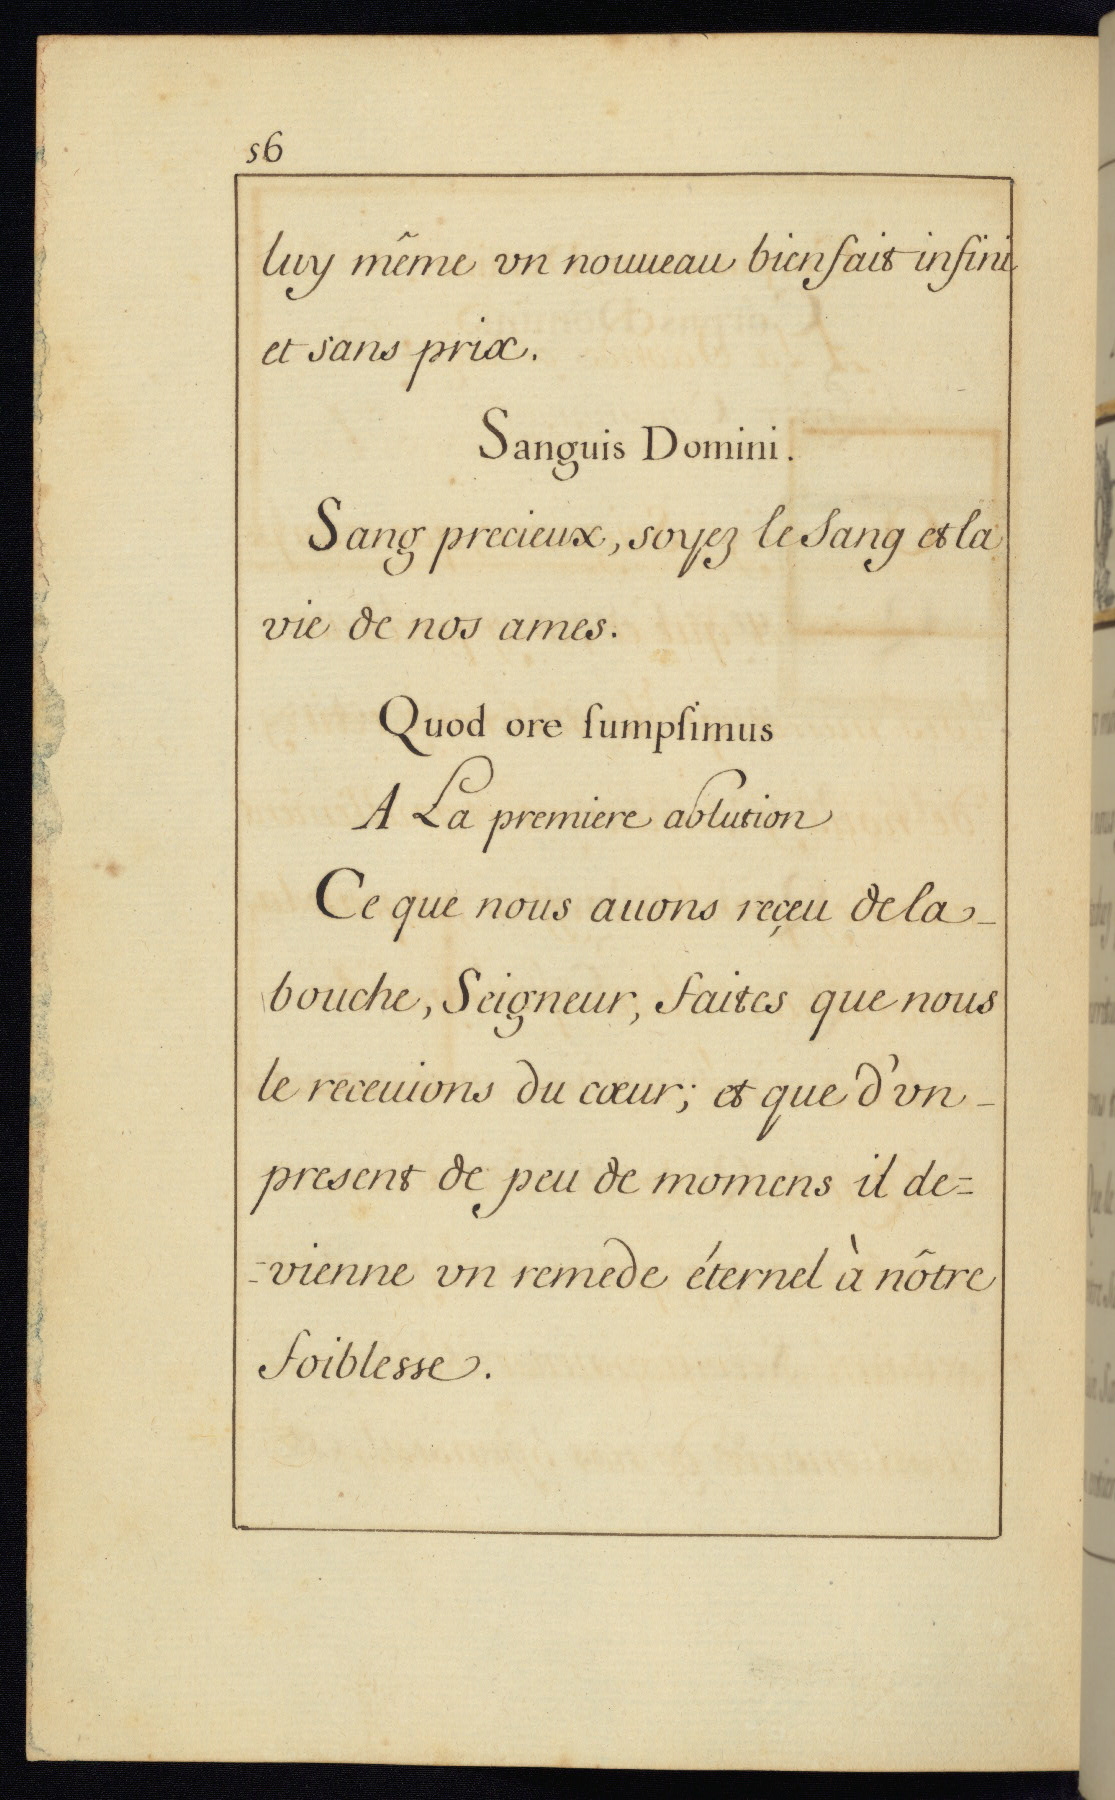 56
luy même vn nouueau bienfait infini
et sans prix.
Sanguis Domini.
Sang precieux, soyez le Sang et la
vie de nos ames.
Quod ore ſumpſimus
A La premiere ablution
Ce que nous auons reçeu de la
bouche, Seigneur, faites que nous
le receuions du cœur; et que d'vn
present de peu de momens il de=
=vienne vn remede éternel à nôtre
foiblesse.